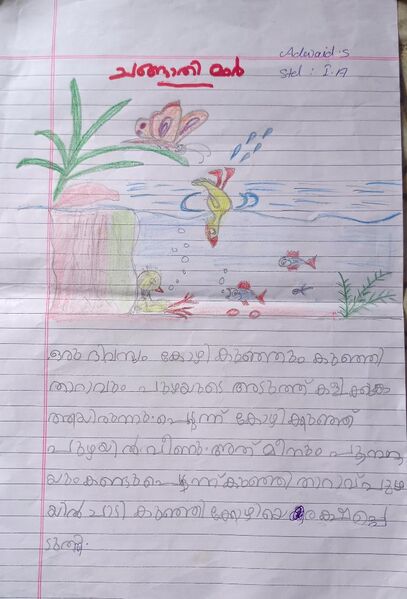 ചങ്ങാതിമാർ
Adwaid.S
Std : I.A
ഒരു ദിവസം കോഴി കുഞ്ഞും കുഞ്ഞി
താറാവും പുഴയുടെ അടുത്ത് കളിക്കുക
ആയിരുന്നു. പെട്ടന്ന് കോഴി കുഞ്ഞ്
പുഴയിൽ വീണു. അത് മീനും
കണ്ടു പെട്ടന്ന് കുഞ്ഞി താറാവ് പുഴ
യിൽ ചാടി കുഞ്ഞി കോഴിയെ രക്ഷപ്പെ
ടുത്തി.